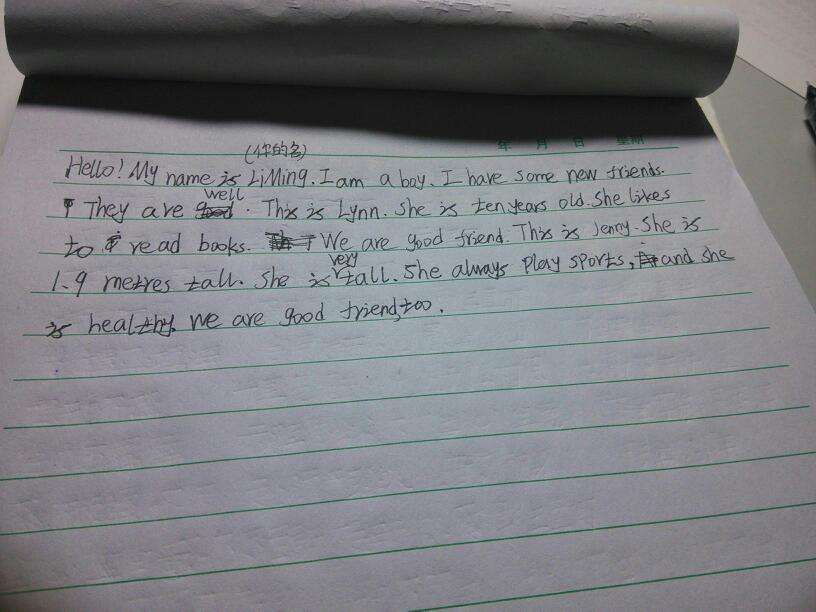 年 月 日 星期
(你的名)
Hello! My name is LiMing. I am a boy. I have some new friends.
well
They are good. This is Lynn. She is ten years old. She likes
to read books. We are good friend. This is Jenny. She is
very
1.9 metres tall. She is tall. She always play sports, and she
is healthy. We are good friend, too.